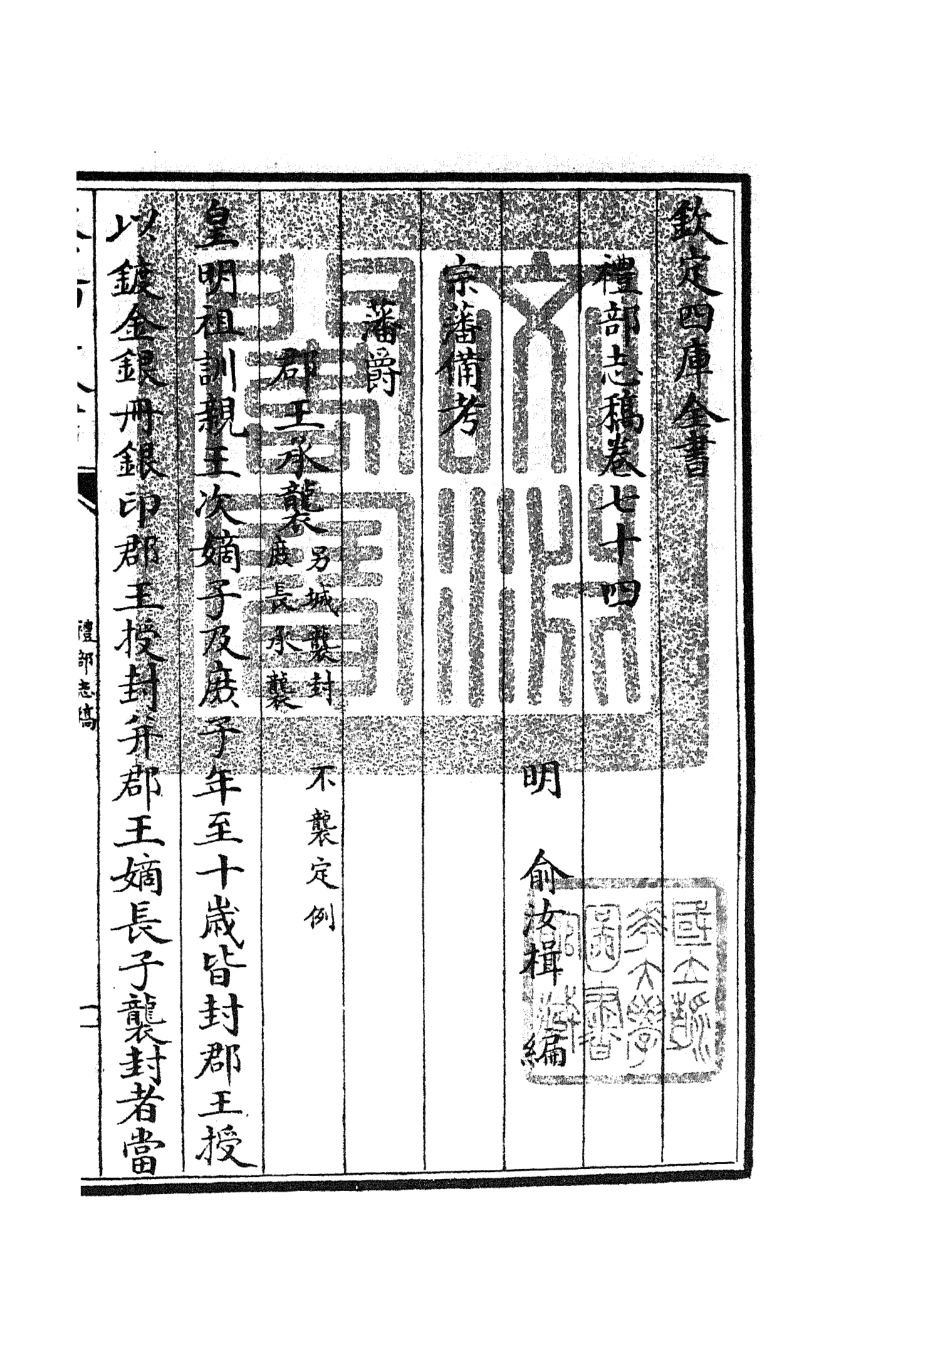 欽定四庫全書
禮部志稿卷七十四
明 俞汝楫 編
宗藩備考
藩爵
郡王承襲 另城襲封 不襲定例
庶長承襲
皇明祖訓親王次嫡子及庶子年至十歲皆封郡王授
以鍍金銀冊銀印郡王授封并郡王嫡長子襲封者當
禮部志稿
一
文淵閣寶